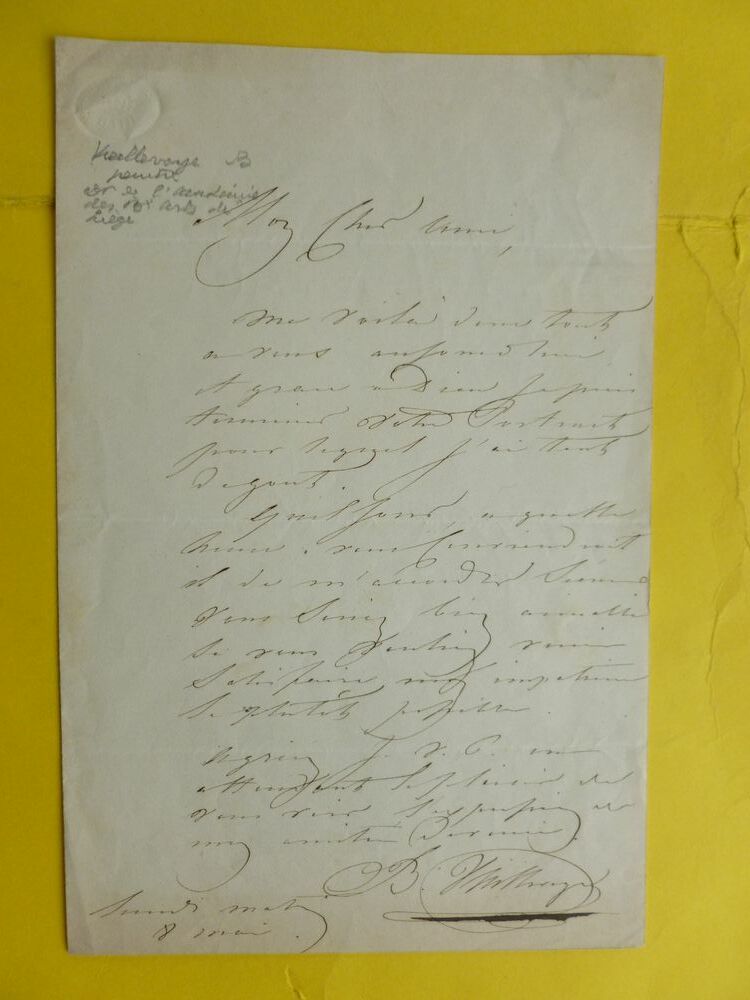 Vieillevoye B
peintre
de l'Académie
des Bx Arts de
Liège
Mon Cher ami,
Me voilà donc tout
a vous aujourd'hui
et grace a Dieu je puis
terminer votre Portrait
pour lequel j'ai tant
de gout.
Quel jour, a quelle
heure, vous conviendrait
il de m'accorder Séance
vous seriez bien aimable
Si vous vouliez venir
Satisfaire mon impatience
le plutôt possible.
Agréez J. V. P. en
attendant le plaisir de
vous voir, l'expression de
mon amitié
B. Vieillevoye
Lundi matin
8 mai.